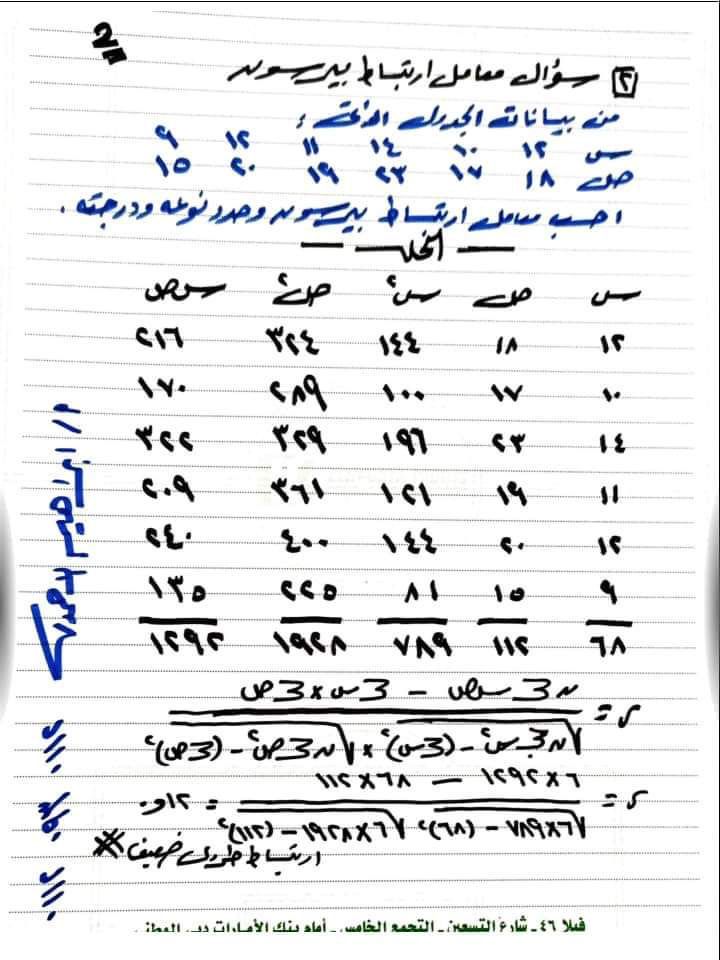 2
٢ سؤال معامل ارتباط بيرسون
من بيانات الجدول الآتى :
س ١٢ ١٠ ١٤ ١١ ١٢ ٩
ص ١٨ ١٧ ٢٣ ١٩ ٢٠ ١٥
احسب معامل ارتباط بيرسون وحدد نوعه ودرجته .
الحل
س ص س٢ ص٢ س ص
١٢ ١٨ ١٤٤ ٣٢٤ ٢١٦
١٠ ١٧ ١٠٠ ٢٨٩ ١٧٠
١٤ ٢٣ ١٩٦ ٣٢٩ ٣٢٢
١١ ١٩ ١٢١ ٣٦١ ٢٠٩
١٢ ٢٠ ١٤٤ ٤٠٠ ٢٤٠
٩ ١٥ ٨١ ٢٢٥ ١٣٥
٦٨ ١١٢ ٧٨٩ ١٩٢٨ ١٢٩٢
ر = (ن مج س ص - مج س × مج ص) / (√(ن مج س٢ - (مج س)٢) × √(ن مج ص٢ - (مج ص)٢))
ر = (٦×١٢٩٢ - ٦٨×١١٢) / (√(٦×٧٨٩ - (٦٨)٢) √(٦×١٩٢٨ - (١١٢)٢)) = ١٢و٠
ارتباط طردى ضعيف
م/ ابراهيم الاحمدى
فيلا ٤٦ - شارع التسعين - التجمع الخامس - أمام بنك الأمارات دبى الوطنى